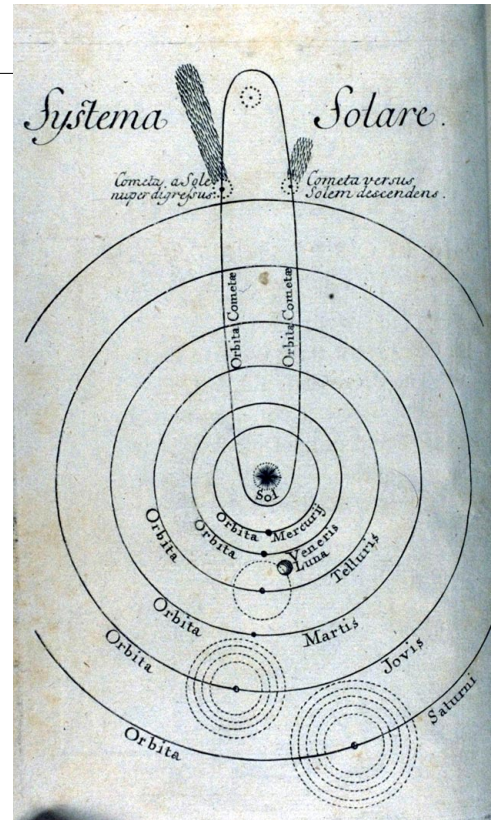 Systema Solare.
Cometa a Sole
nuper digressus
Cometa versus
Solem descendens.
Orbita Cometæ
Orbita Cometæ
Sol
Orbita Mercurij
Orbita Veneris
Luna
Orbita Telluris
Orbita Martis
Orbita Jovis
Orbita Saturni